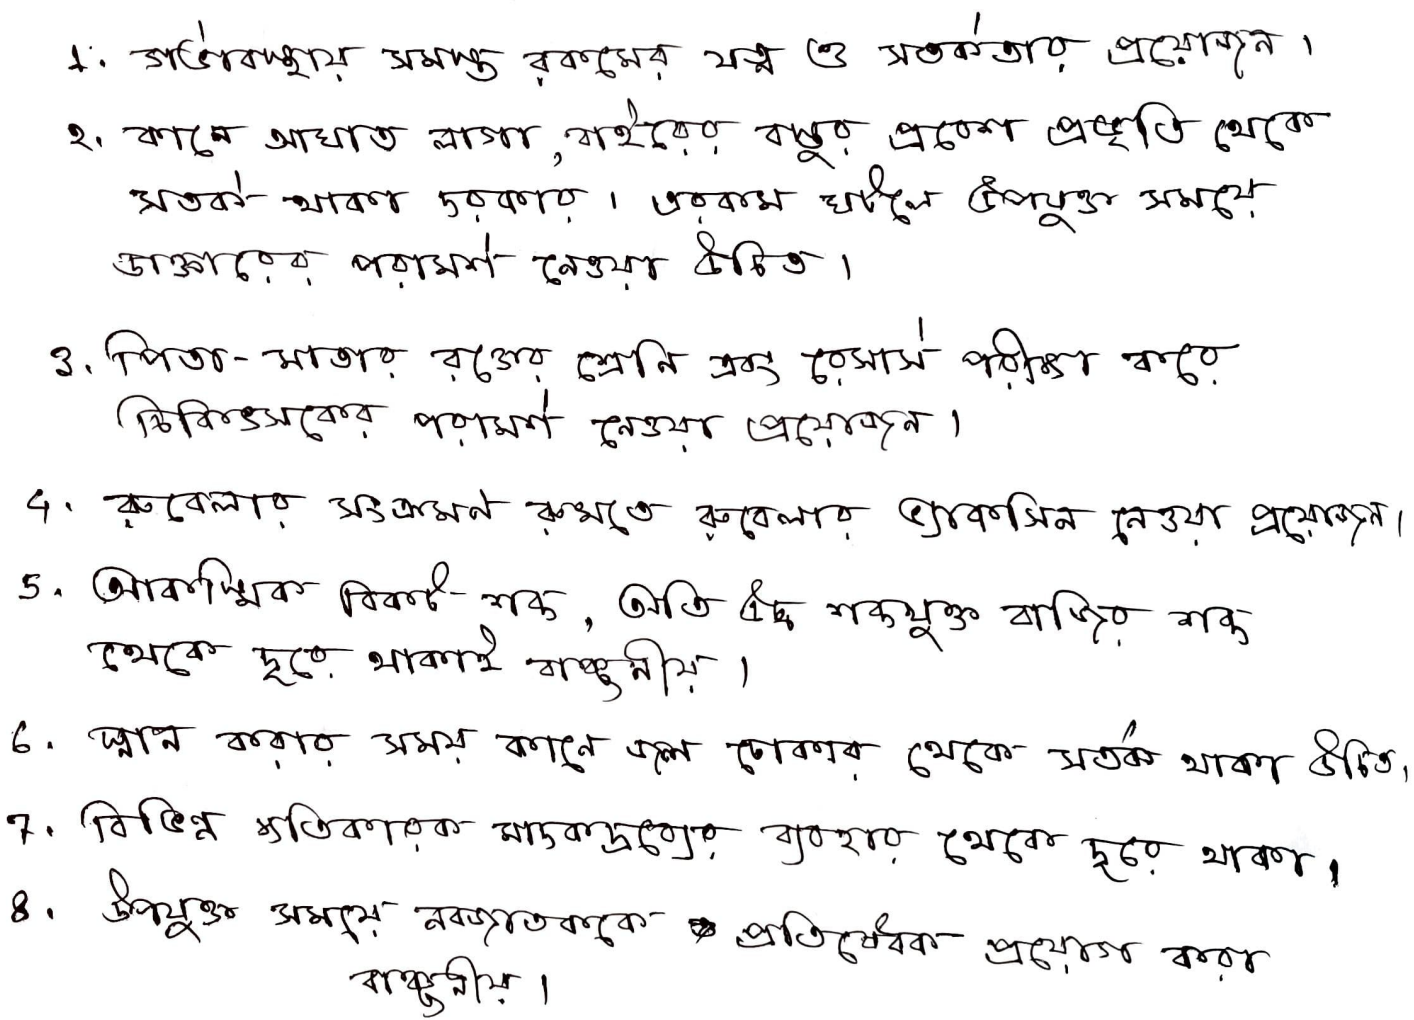 1. গর্ভাবস্থায় সমস্ত রকমের যত্ন ও সতর্কতার প্রয়োজন।
২. কানে আঘাত লাগা, বাইরের বস্তুর প্রবেশ প্রভৃতি থেকে
সতর্ক থাকা দরকার। এরকম ঘটলে উপযুক্ত সময়ে
ডাক্তারের পরামর্শ নেওয়া উচিত।
3. পিতা-মাতার রক্তের শ্রেনি এবং রেসার্স পরীক্ষা করে
চিকিৎসকের পরামর্শ নেওয়া প্রয়োজন।
4. রুবেলার সংক্রমণ রুখতে রুবেলার ভ্যাকসিন নেওয়া প্রয়োজন।
5. আকস্মিক বিকট শব্দ, অতি উচ্চ শব্দযুক্ত বাজির শব্দ
থেকে দূরে থাকাই বাঞ্ছনীয়।
6. স্নান করার সময় কানে জল ঢোকার থেকে সতর্ক থাকা উচিত।
7. বিভিন্ন ক্ষতিকারক মাদকদ্রব্যের ব্যবহার থেকে দূরে থাকা।
8. উপযুক্ত সময়ে নবজাতককে প্রতিষেধক প্রয়োগ করা
বাঞ্ছনীয়।